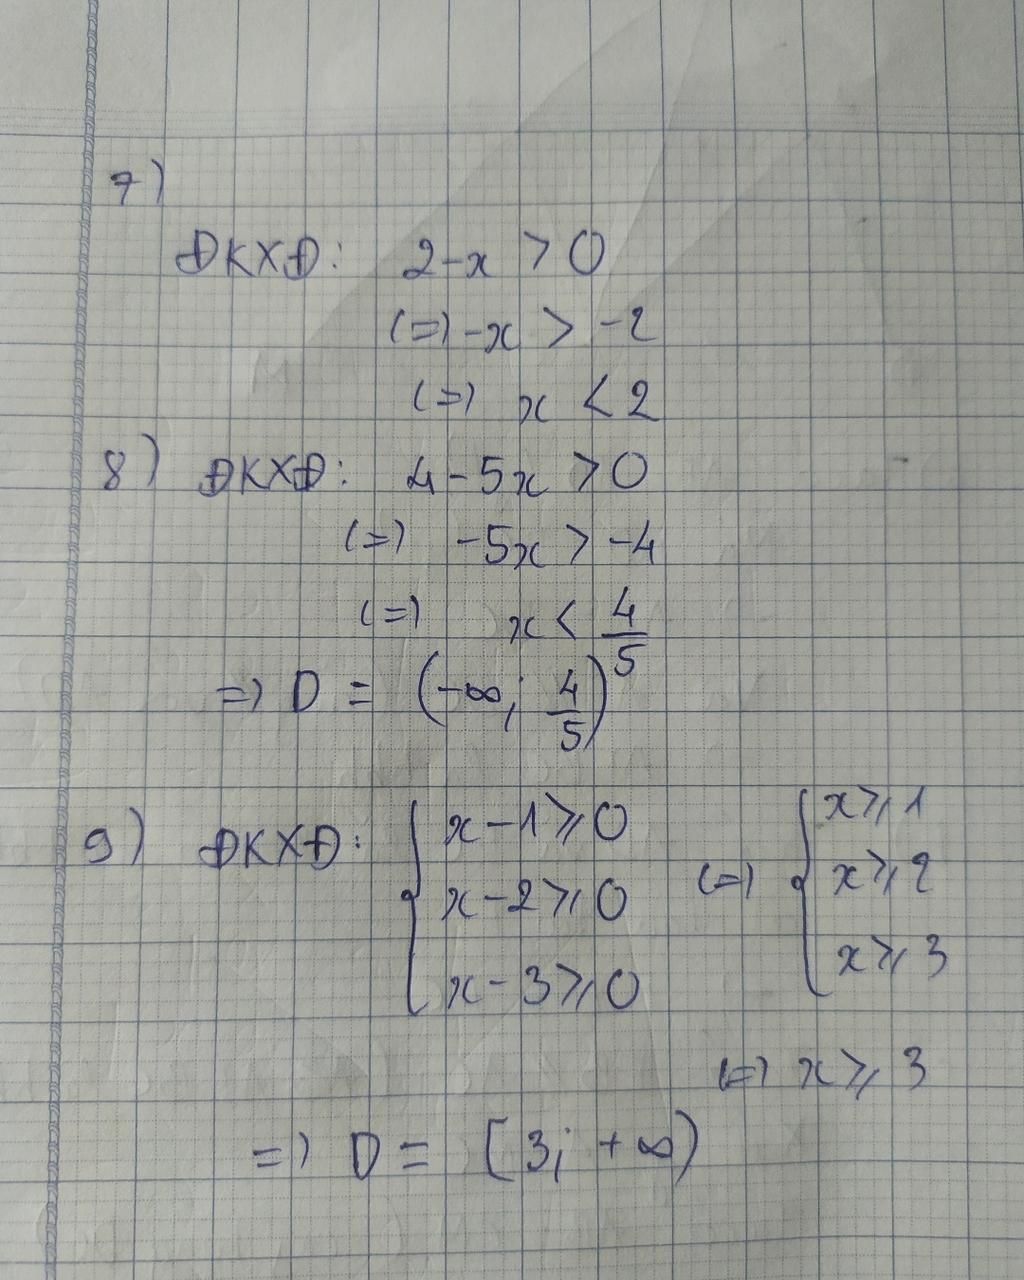 7)
ĐKXĐ: 2-x > 0
(=) -x > -2
(=) x < 2
8) ĐKXĐ: 4-5x > 0
(=) -5x > -4
(=) x < 4/5
=) D = (-∞; 4/5)
9) ĐKXĐ: { x-1 ⩾ 0 (=) { x ⩾ 1
x-2 ⩾ 0 x ⩾ 2
x-3 ⩾ 0 x ⩾ 3
(=) x ⩾ 3
=) D = [3; +∞)